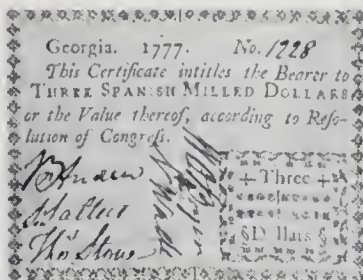 Georgia. 1777. No. 1228
This Certificate intitles the Bearer to
THREE SPANISH MILLED DOLLARS
or the Value thereof, according to Reso-
lution of Congreſs.
Thoˢ Stone
Three
Dllars